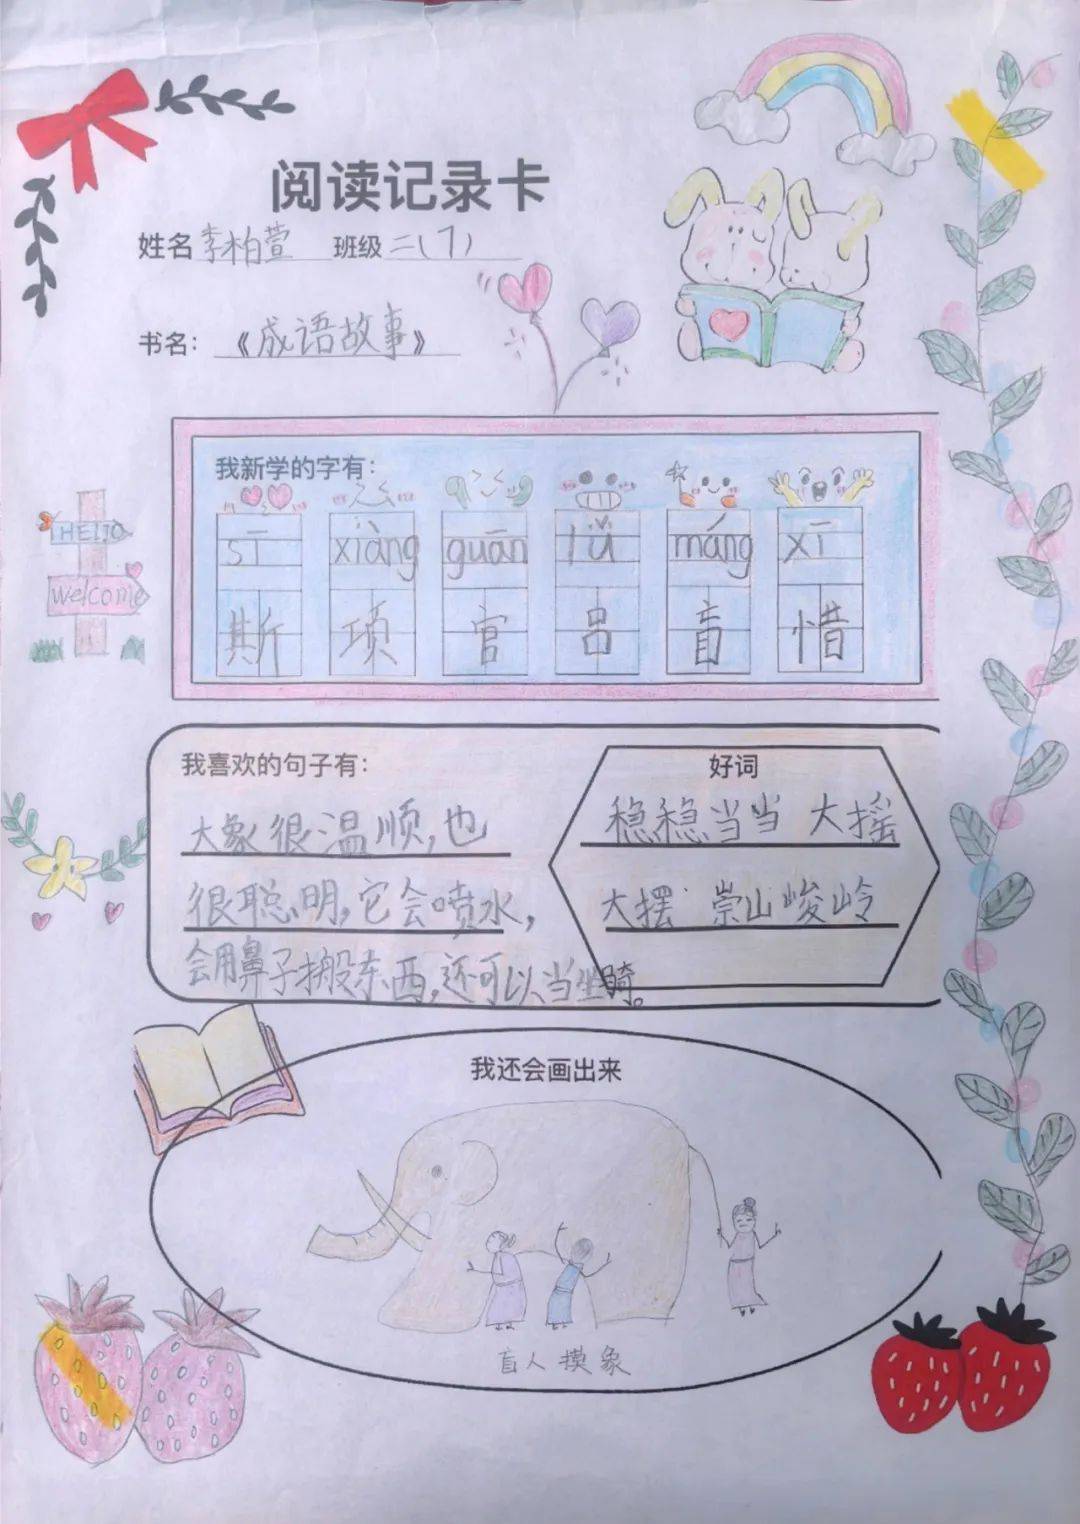 阅读记录卡
姓名 李柏萱 班级 二(7)
书名：《成语故事》
HEllO
welcome
我新学的字有：
sī xiàng guān lǚ máng xī
斯 项 官 吕 盲 惜
我喜欢的句子有：
大象很温顺,也
很聪明,它会喷水,
会用鼻子搬东西,还可以当坐骑。
好词
稳稳当当 大摇
大摆 崇山峻岭
我还会画出来
盲人摸象